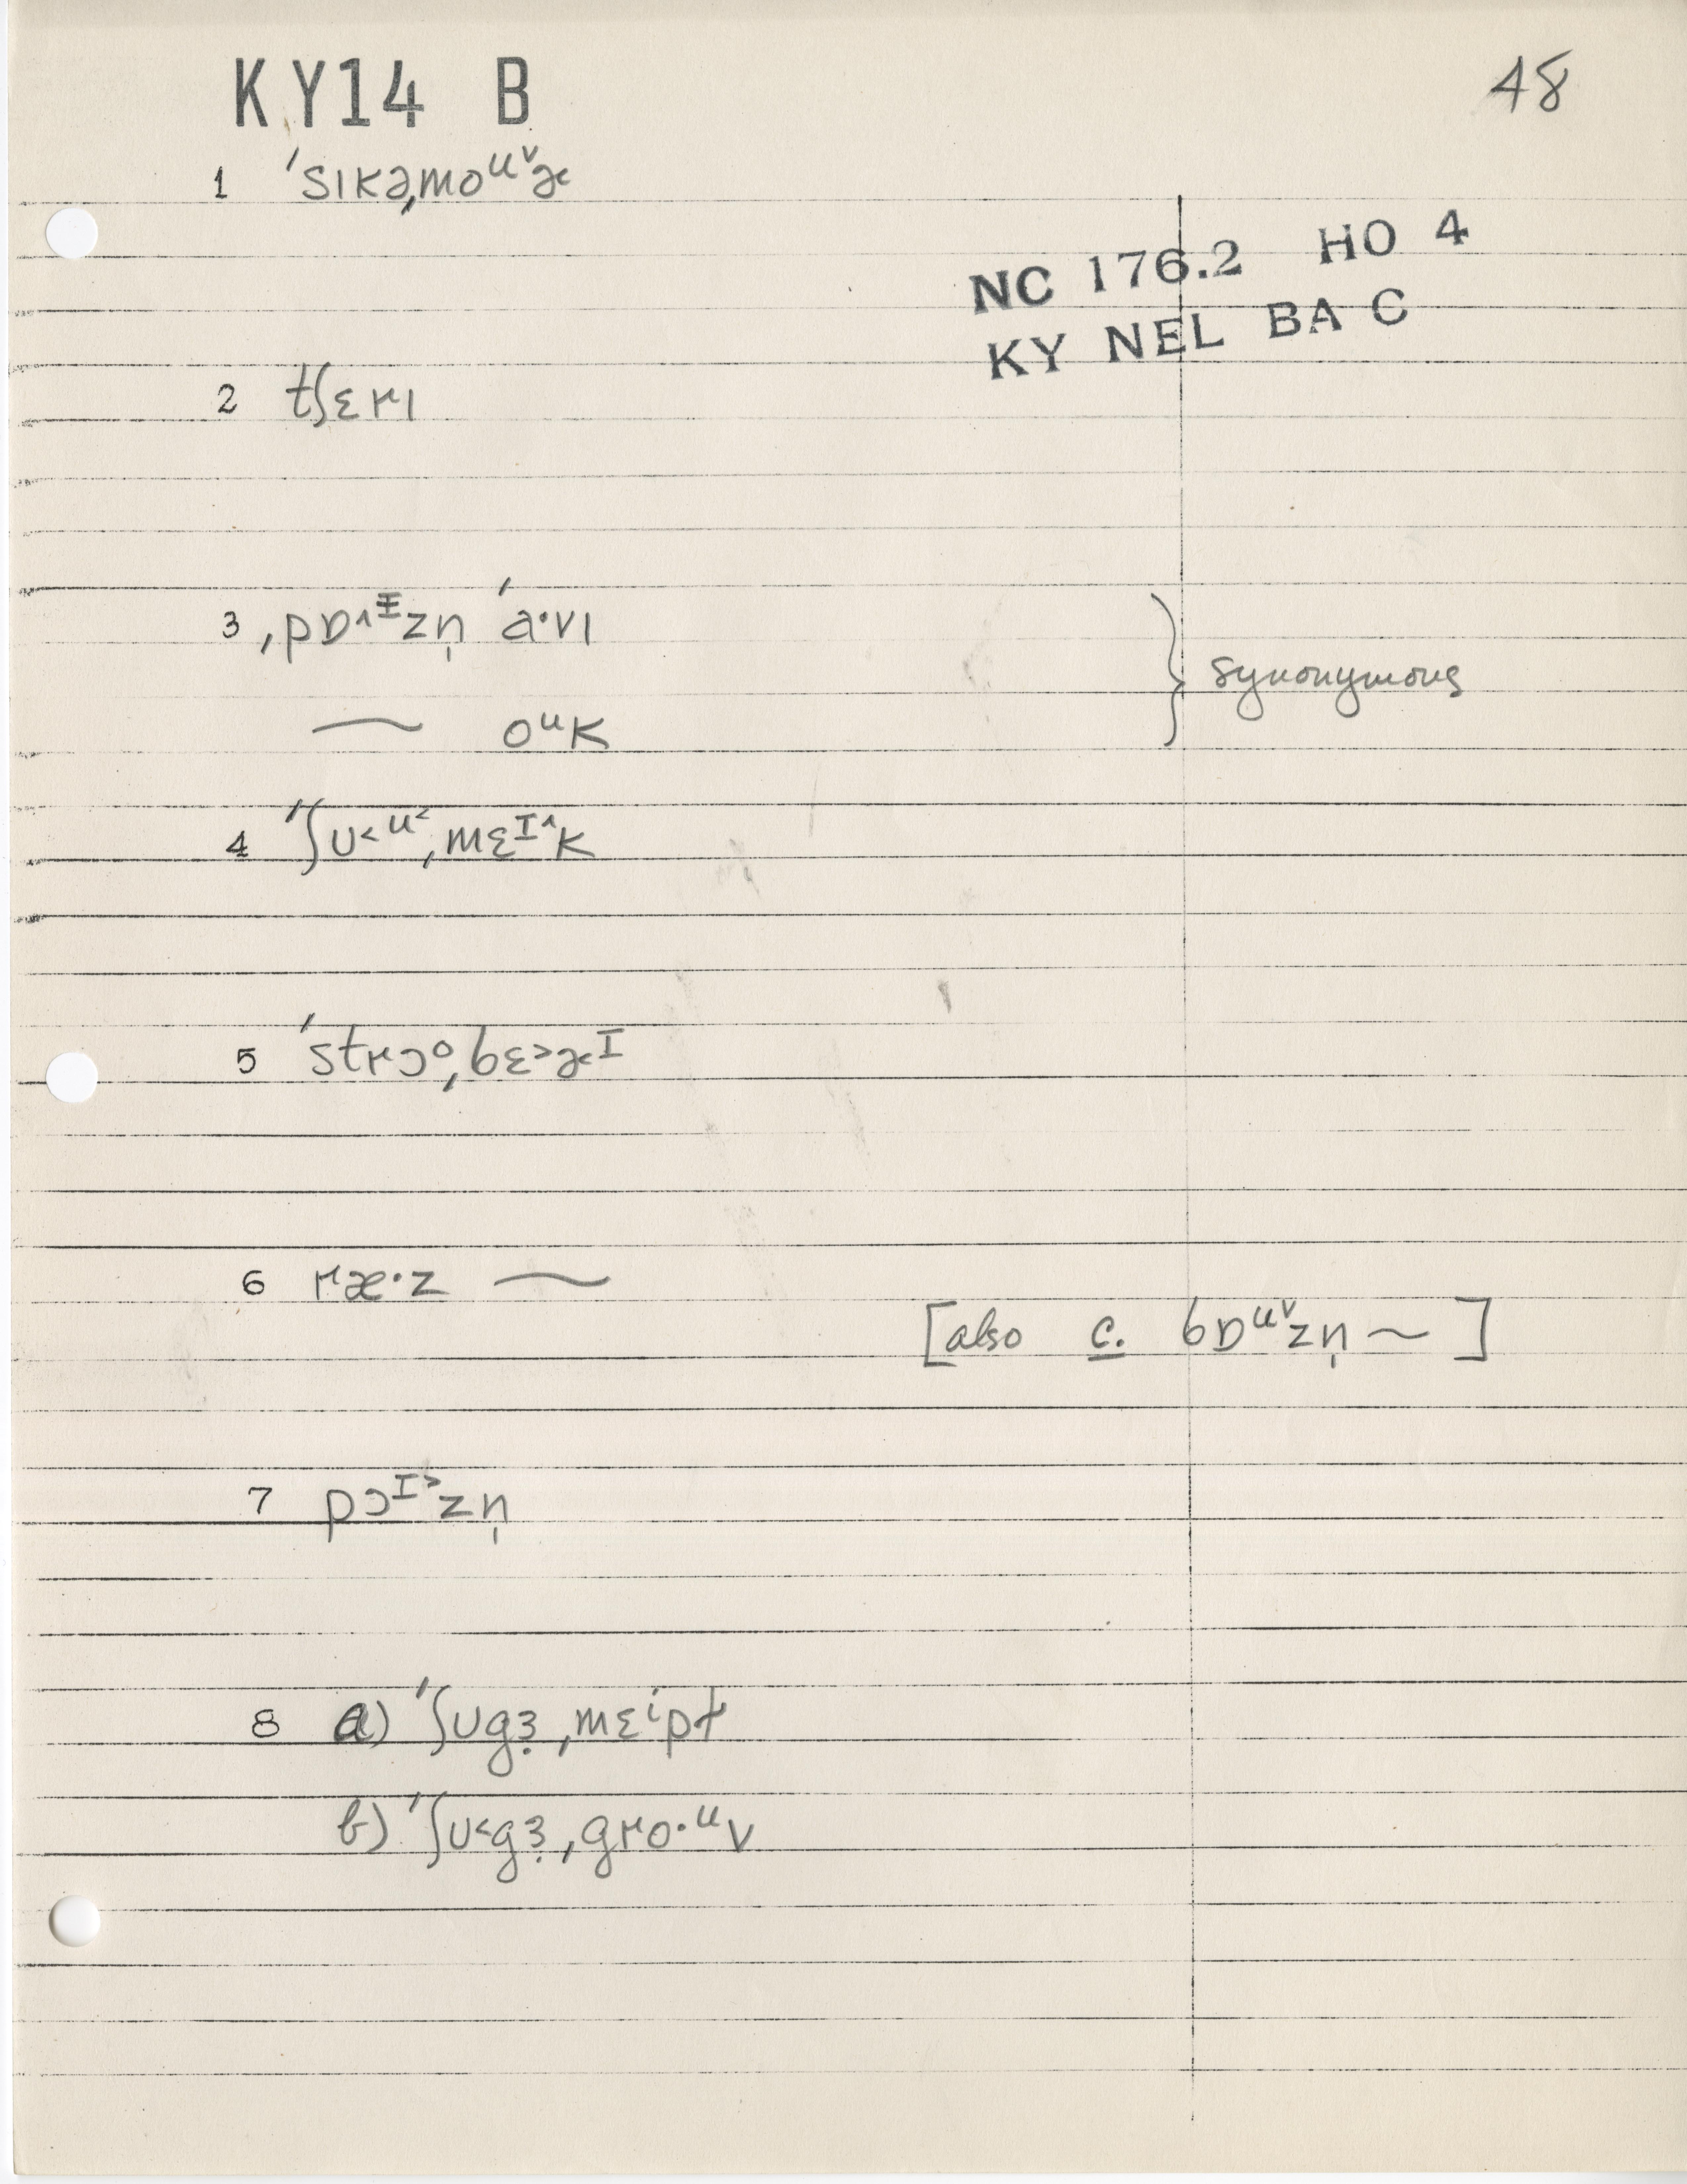 KY14 B
48
1 ˈsɪkəˌmoᵘ˅ə
NC 176.2 HO 4
KY NEL BA C
2 tʃɛrɪ
3 ˌpɒ˄ᶧzn̩ ˈa·vɪ
} synonymous
⁓ oᵘk
4 ˈʃʊ˂ᵘ˂ˌmɛᴵ˄k
5 ˈstrɔᵒˌbɛ˃əᴵ
6 ræ·z ⁓
[also c. bɒᵘ˅zn̩ ~ ]
7 pɔᴵ˃zn̩
8 a) ˈʃʊgɜ̣ˌmɛⁱpɫ
b) ˈʃʊ˂gɜ̣ˌgro·ᵘv